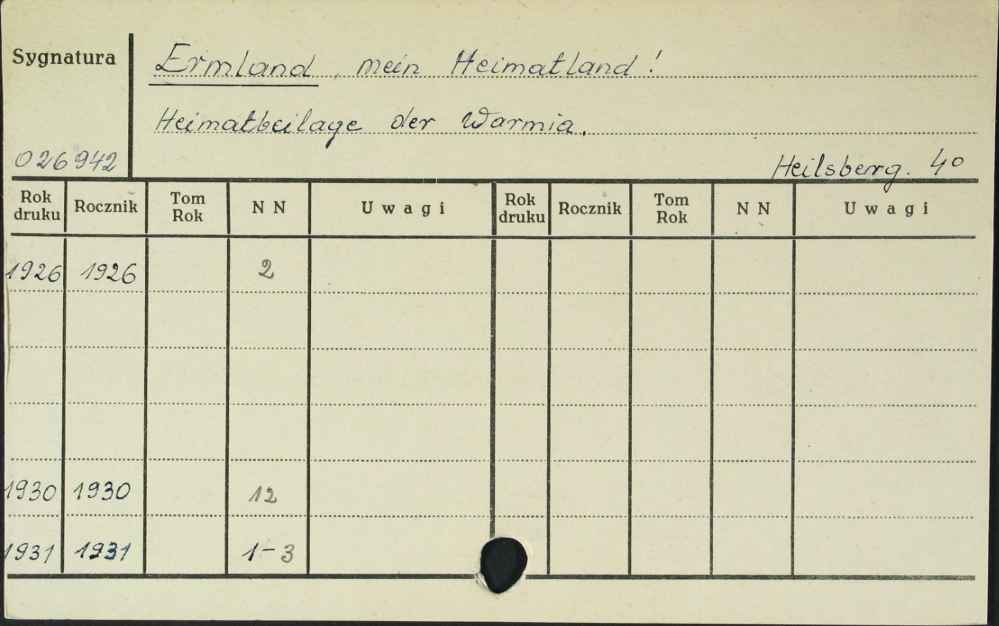 Sygnatura
Ermland, mein Heimatland!
Heimatbeilage der Warmia.
026942
Heilsberg. 4°
Rok druku Rocznik Tom Rok N N Uwagi Rok druku Rocznik Tom Rok N N Uwagi
1926 1926 2
1930 1930 12
1931 1931 1-3